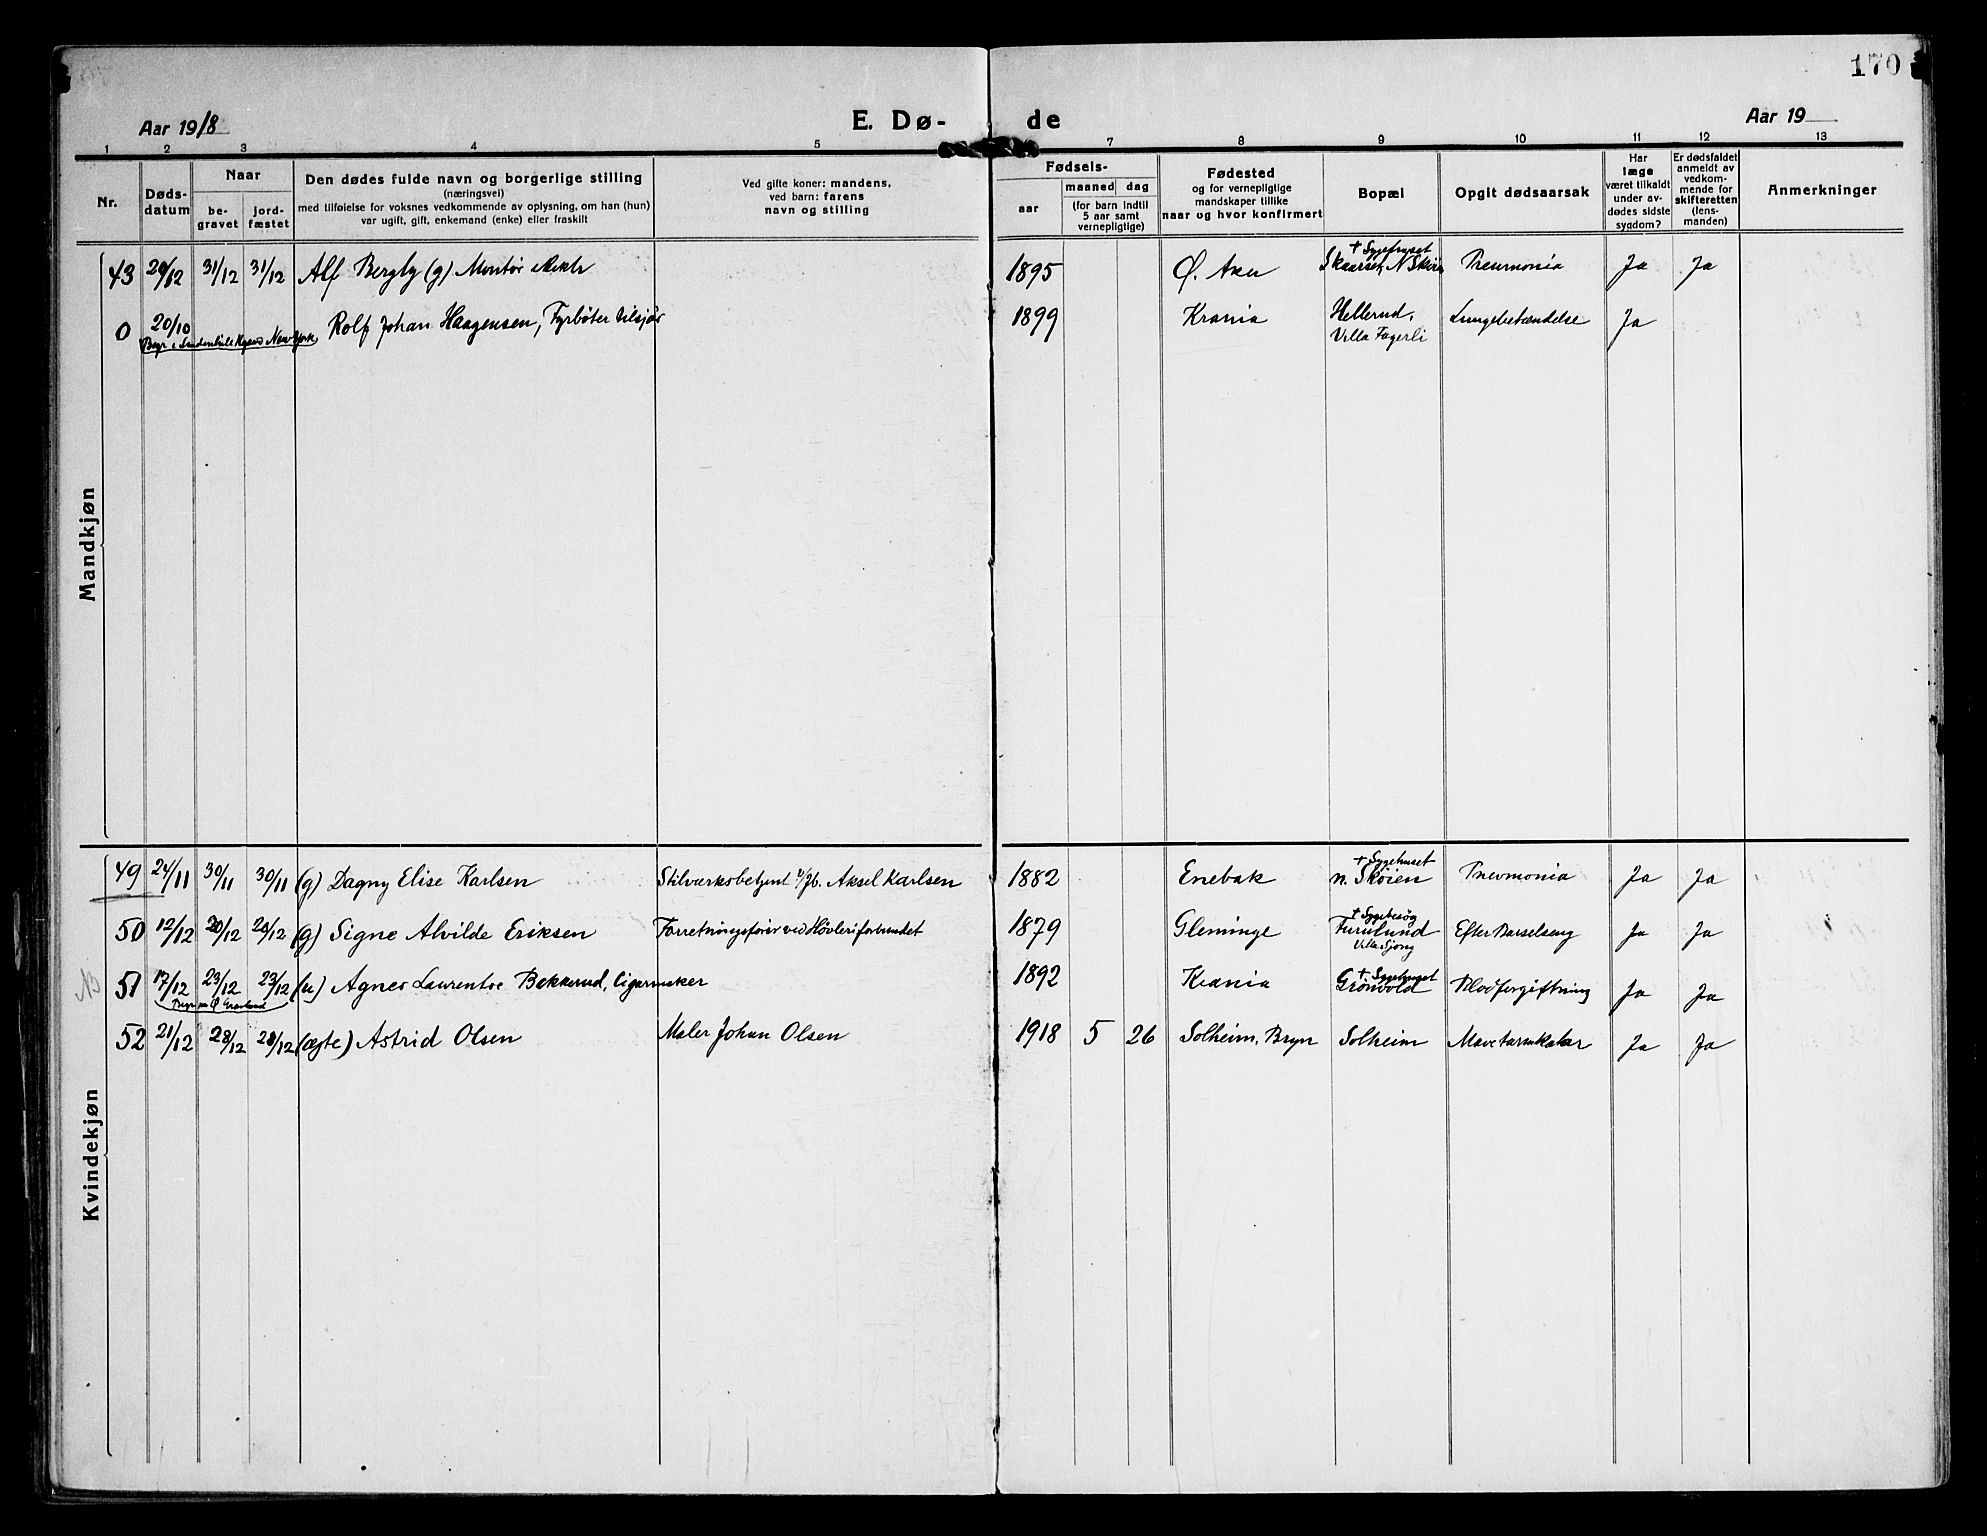 170
Aar 1918 E. Dø- de Aar 19
1 2 3 4 5 7 8 9 10 11 12 13
Nr.
Døds-
datum
Naar
be-
gravet
jord-
fæstet
Den dødes fulde navn og borgerlige stilling
(næringsvei)
med tilføielse for voksnes vedkommende av oplysning, om han (hun)
var ugift, gift, enkemand (enke) eller fraskilt
Ved gifte koner: mandens,
ved barn: farens
navn og stilling
Fødsels-
aar
maaned dag
(for barn indtil
5 aar samt
vernepligtige)
Fødested
og for vernepligtige
mandskaper tillike
naar og hvor konfirmert
Bopæl
Opgit dødsaarsak
Har
læge
været tilkaldt
under av-
dødes sidste
sygdom?
Er dødsfaldet
anmeldt av
vedkom-
mende for
skifteretten
(lens-
manden)
Anmerkninger
Mandkjøn
† Sygehuset
43 29/12 31/12 31/12 Alf Bergby (g) Montør 1895 Ø. Aker N Skøien Pneumonia Ja Ja
0 20/10 Rolf Johan Haagensen, Fyrbøter tilsjøs 1899 Krania Hellerud, Lungebetændelse Ja
Begr i New York Villa Fagerli
Kvindekjøn
† Sygehuset
49 24/11 30/11 30/11 (g) Dagny Elise Karlsen Stilværksbetjent v/Jb. Aksel Karlsen 1882 Enebak n. Skøien Pnevmonia Ja Ja
† Sygebesøg
50 12/12 20/12 20/12 (g) Signe Alvilde Eriksen Forretningsfører ved Høvleriforbundet 1879 Gleminge Furulund Efter Barselseng Ja Ja
Villa Sjong
† Sygehuset
51 17/12 23/12 23/12 (u) Agnes Laurentse Bekkerud, Cigarmaker 1892 Krania Grönvold Blodforgiftning Ja Ja
52 21/12 28/12 28/12 (ægte) Astrid Olsen Maler Johan Olsen 1918 5 26 Solheim, Bryn Solheim Mavetarmkatar Ja Ja